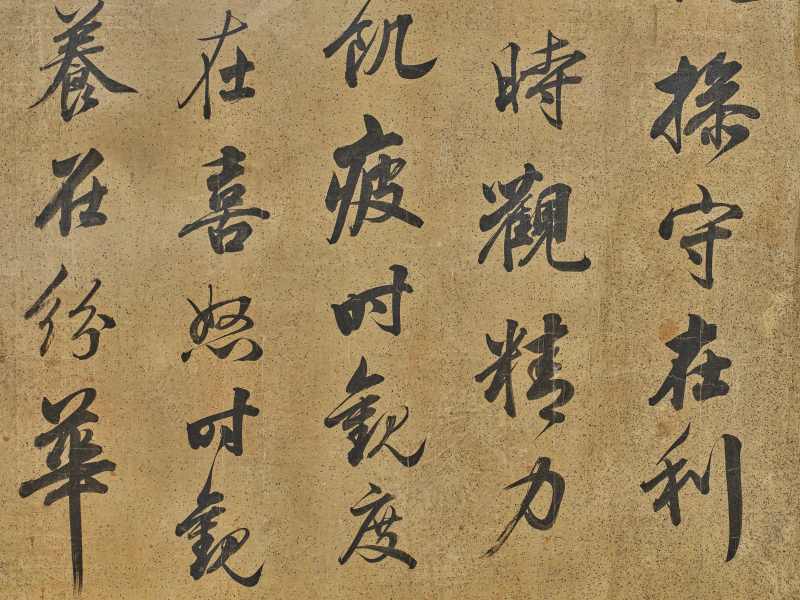 操守在利
時觀精力
飢疲时觀度
在喜怒时觀
養在紛華